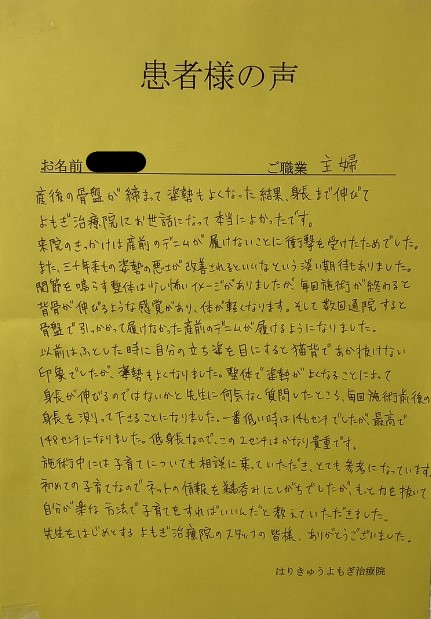 患者様の声
お名前
ご職業 主婦
産後の骨盤が締まって姿勢もよくなった結果、身長まで伸びて
よもぎ治療院にお世話になって本当によかったです。
来院のきっかけは産前のデニムが履けないことに衝撃を受けたためでした。
また、三十年来もの姿勢の悪さが改善されるといいなという淡い期待もありました。
関節を鳴らす整体は少し怖いイメージがありましたが、毎回施術が終わると
背骨が伸びるような感覚があり、体が軽くなります。そして数回通院すると
骨盤で引っかかって履けなかった産前のデニムが履けるようになりました。
以前はふとした時に自分の立ち姿を目にすると猫背であか抜けない
印象でしたが、姿勢もよくなりました。整体で姿勢がよくなることによって
身長が伸びるのではないかと先生に何気なく質問したところ、毎回施術前後の
身長を測って下さることになりました。一番低い時は146センチでしたが、最高で
148センチになりました。低身長なので、この2センチはかなり貴重です。
施術中には子育てについても相談に乗っていただき、とても参考になっています。
初めての子育てなのでネットの情報を鵜呑みにしがちでしたが、もっと力を抜いて
自分が楽な方法で子育てをすればいいんだと教えていただきました。
先生をはじめとするよもぎ治療院のスタッフの皆様、ありがとうございました。
はりきゅうよもぎ治療院